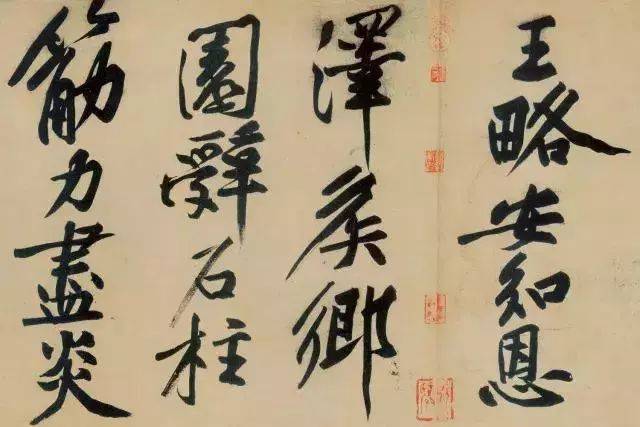 王略安知恩
澤侯鄉
園辭石柱
筋力盡炎